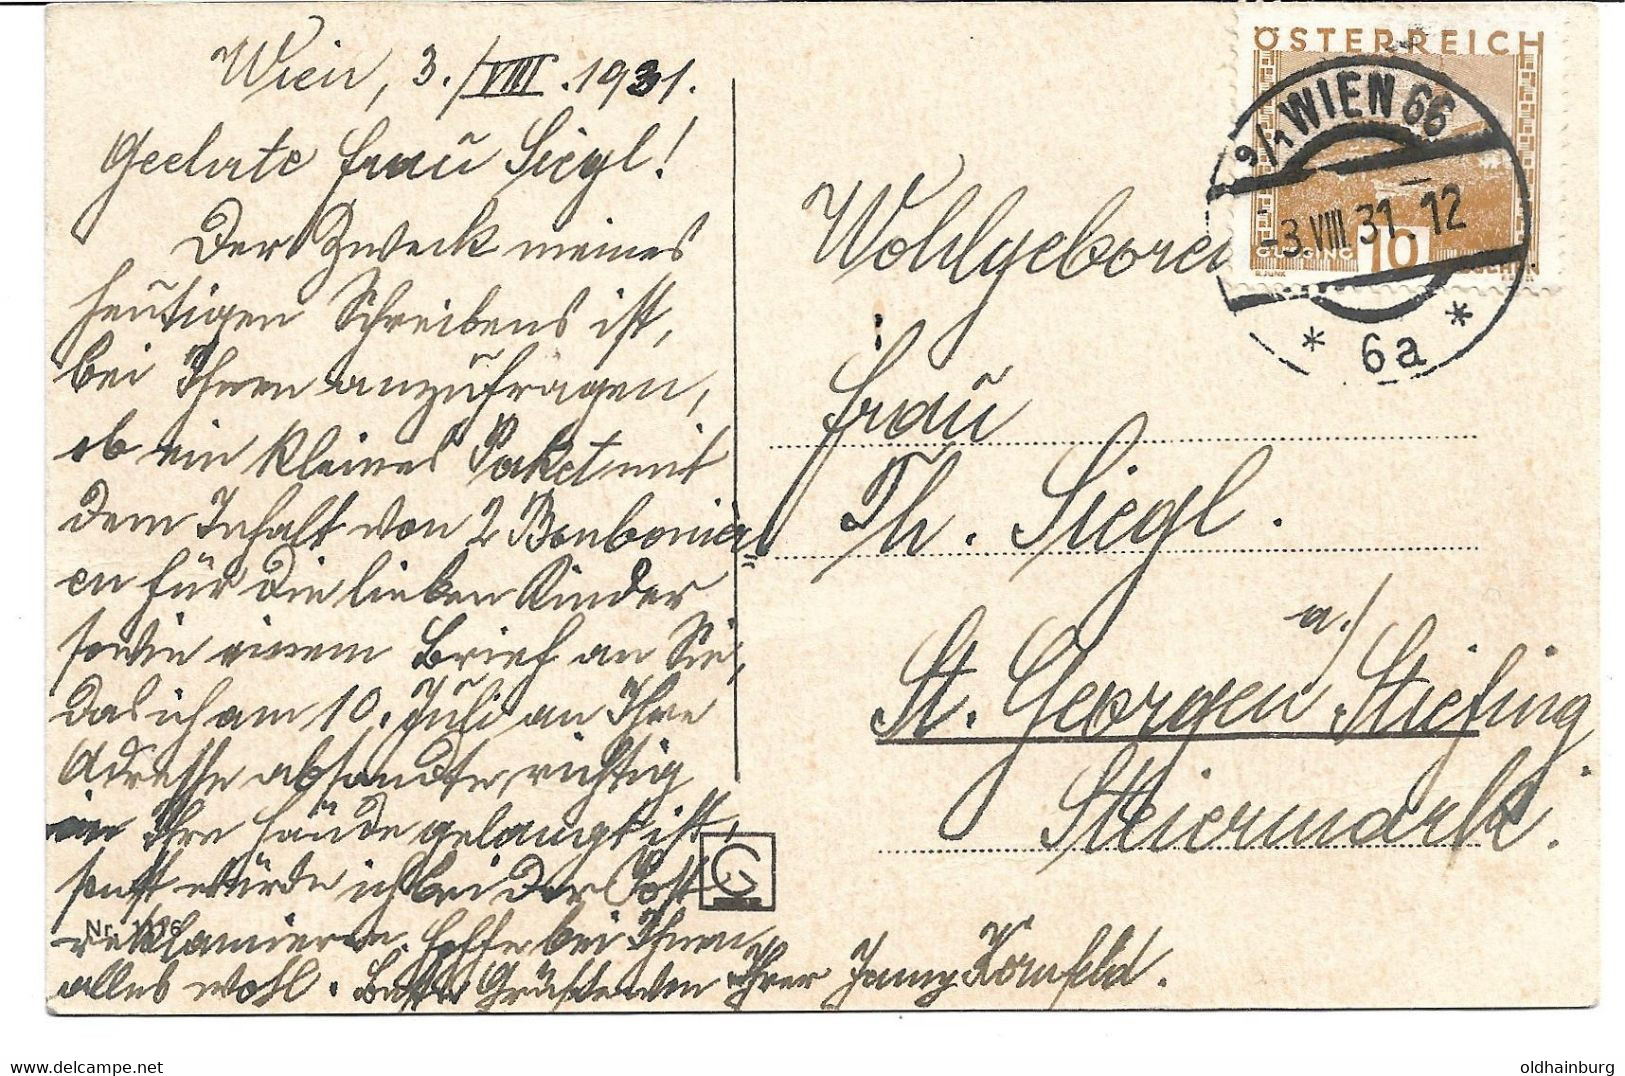 Wien, 3./VIII.1931.
Geehrte Frau Siegl!
Der Zweck meines
heutigen Schreibens ist,
bei Ihnen anzufragen,
ob ein kleines Paket mit
dem Inhalt von 2 Bonbonièr
en für die lieben Kinder
sowie einem Brief an Sie,
das ich am 10. Juli an Ihre
Adresse absandte, richtig
in Ihre Hände gelangt ist,
sonst würde ich bei der Post
reklamieren. Hoffe bei Ihnen
alles wohl. Beste Grüße von Ihrer Jenny Kornfeld.
Wohlgeboren
Frau
Th. Siegl.
St. Georgen a./Stiefing
Steiermark.
ÖSTERREICH
GÜSSING 10 GROSCHEN
9/1 WIEN 66
-3.VIII.31.12
* 6a *
G
Nr. 1116
delcampe.net
oldhainburg